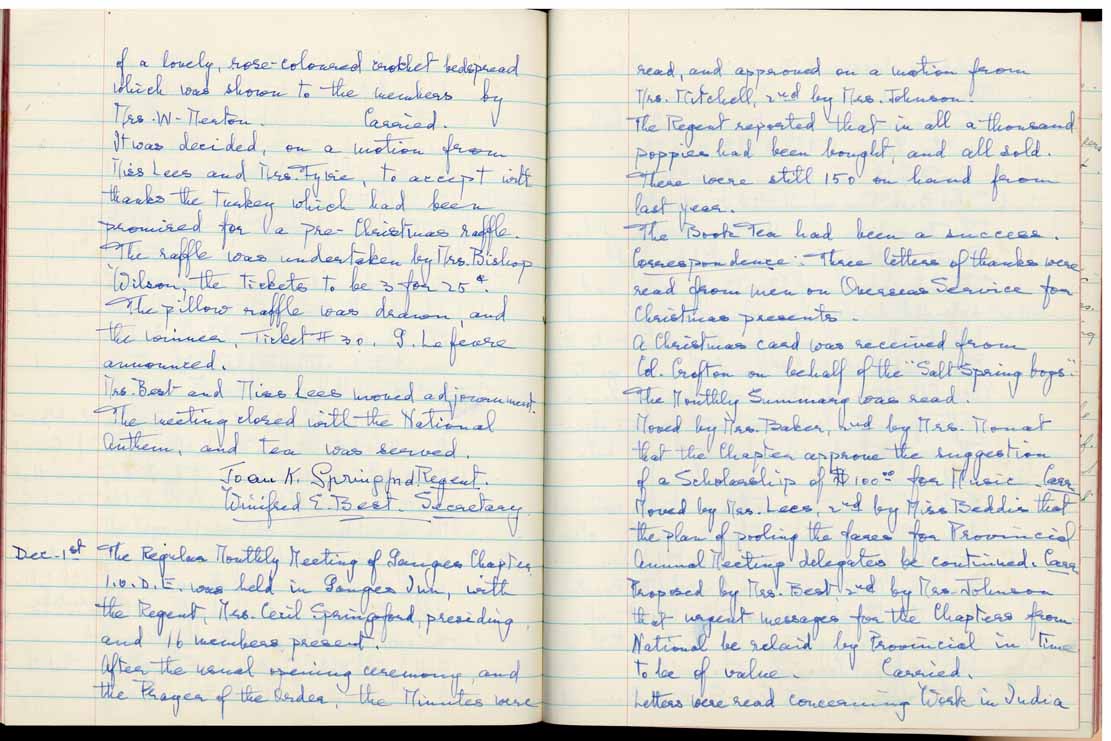 of a lovely, rose-coloured crochet bedspread
which was shown to the members by
Mrs. W. Merton. Carried.
It was decided, on a motion from
Miss Lees and Mrs. Fyvie, to accept with
thanks the Turkey which had been
promised for a pre-Christmas raffle.
The raffle was undertaken by Mrs. Bishop
Wilson, the tickets to be 3 for 25¢.
The pillow raffle was drawn, and
the winner, Ticket # 30. G. Lefevre
announced.
Mrs. Best and Miss Lees moved adjournment.
The meeting closed with the National
Anthem, and tea was served.
Joan K. Springford Regent.
Winifred E. Best. Secretary
Dec. 1st The Regular Monthly Meeting of Ganges Chapter
I.O.D.E. was held in Ganges Inn, with
the Regent, Mrs. Cecil Springford, presiding
and 16 members present.
After the usual opening ceremony, and
the Prayer of the Order, the Minutes were
read, and approved on a motion from
Mrs. Mitchell, 2nd by Mrs. Johnson.
The Regent reported that in all a thousand
poppies had been bought, and all sold.
There were still 150 on hand from
last year.
The Book Tea had been a success.
Correspondence: Three letters of thanks were
read from men on Overseas Service for
Christmas presents.
A Christmas card was received from
Col. Crofton on behalf of the "Salt Spring boys".
The Monthly Summary was read.
Moved by Mrs. Baker, 2nd by Mrs. Mouat
that the Chapter approve the suggestion
of a Scholarship of $100.00 for Music. Carr
Moved by Mrs. Lees, 2nd by Miss Beddis that
the plan of pooling the fares for Provincial
Annual Meeting delegates be continued. Carr
Proposed by Mrs. Best, 2nd by Mrs. Johnson
that urgent messages for the Chapters from
National be relaid by Provincial in time
to be of value. Carried.
Letters were read concerning Work in India